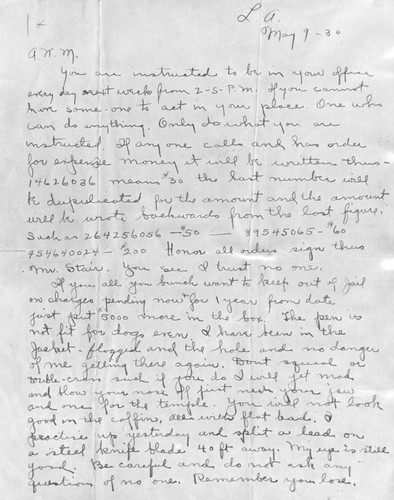 L. A.
May 9-30
A. K. M.
You are instructed to be in your office
every day next week from 2-5-P.M. If you cannot
have some-one to act in your place. One who
can do anything. Only do what you are
instructed. If any one calls and has order
for expense money it will be written thus-
14626036 means $30 the last number will
be dupudicated for the amount and the amount
will be wrote backwards from the last figure.
Such as 264256056 - $50 - 89545065 - $60
454640024 - $200 Honor all orders sign thus
Mr. Stair. You see I trust no one.
If you all you bunch want to keep out of jail
on charges pending now for 1 year from date
just put $5000 more in the box. The pen is
not fit for dogs even. I have been in the
Jacket - flogged and the hole and no danger
of me getting there again. Dont squeal or
double-cross such if you do I will get mad
and blow your nose off just near your jaw
and one for the temple. You will not look
good in the coffin, with flat bead. I
practice up yesterday and split a lead on
a steel knife blade 40 ft away. My eye is still
good. Be careful and do not ask any
questions of no one. Remember you lose.